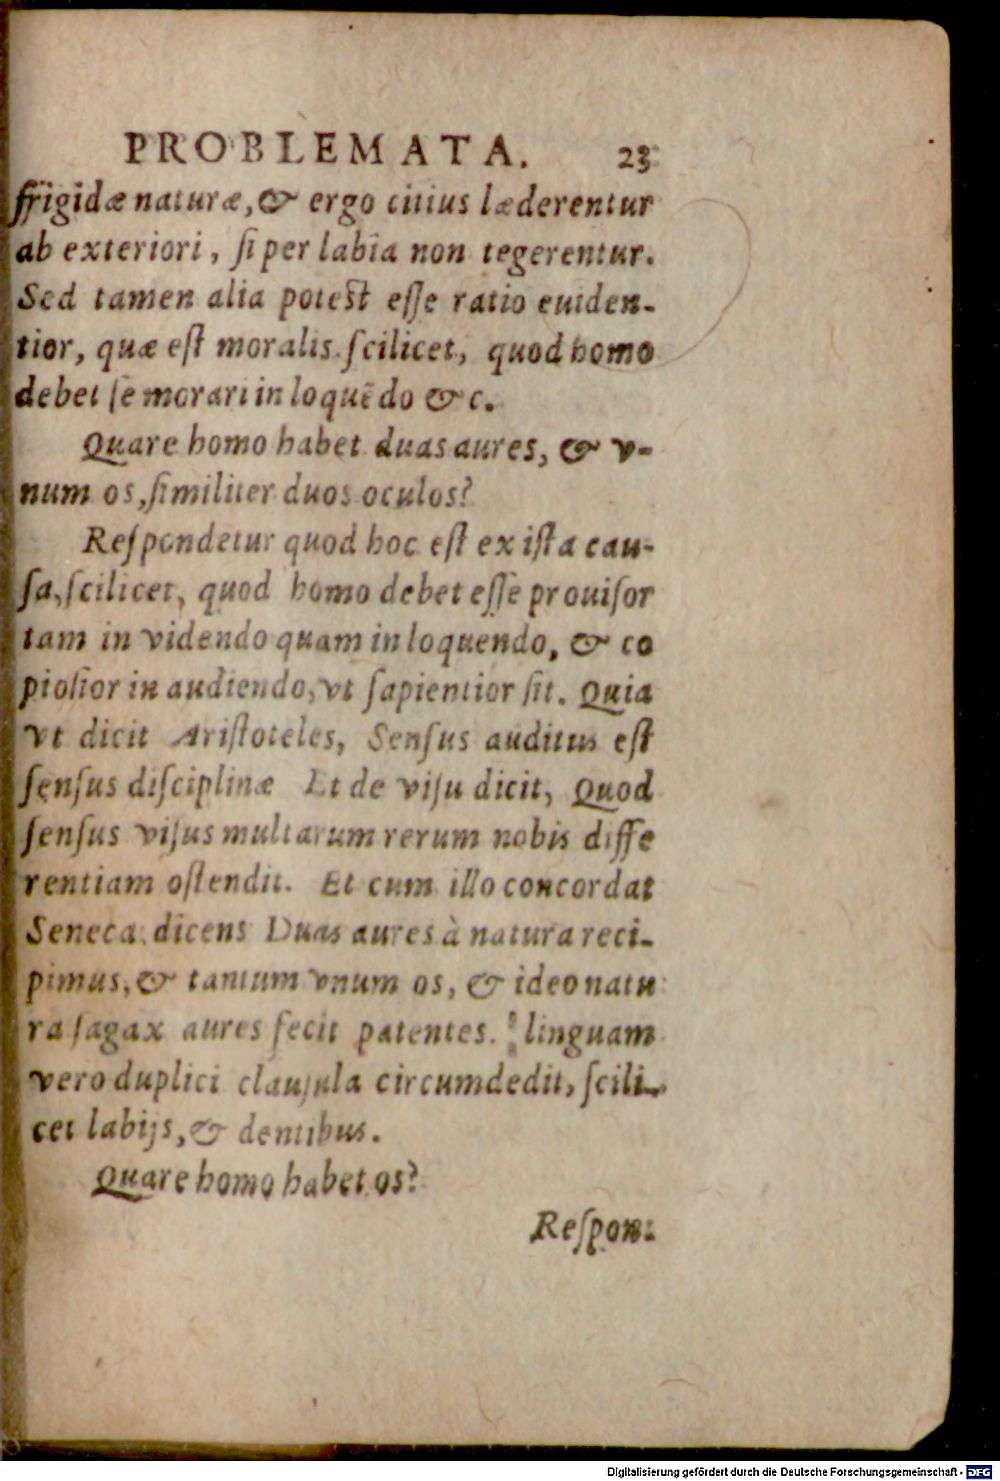 PROBLEMATA. 23
frigidæ naturæ, & ergo citius læderentur
ab exteriori, ſi per labia non tegerentur.
Sed tamen alia poteſt eſſe ratio euiden-
tior, quæ eſt moralis ſcilicet, quod homo
debet ſe morari in loquẽdo &c.
Quare homo habet duas aures, & v-
num os, ſimiliter duos oculos?
Reſpondetur quod hoc eſt ex iſta cau-
ſa, ſcilicet, quod homo debet eſſe prouiſor
tam in videndo quam in loquendo, & co
pioſior in audiendo, vt ſapientior ſit. Quia
vt dicit Ariſtoteles, Senſus auditus eſt
ſenſus diſciplinæ Et de viſu dicit, Quod
ſenſus viſus multarum rerum nobis diffe
rentiam oſtendit. Et cum illo concordat
Seneca dicens Duas aures à natura reci-
pimus, & tantum vnum os, & ideo natu
ra ſagax aures fecit patentes. linguam
vero duplici clauſula circumdedit, ſcili-
cet labijs, & dentibus.
Quare homo habet os?
Reſpon:
Digitalisierung gefördert durch die Deutsche Forschungsgemeinschaft - DFG